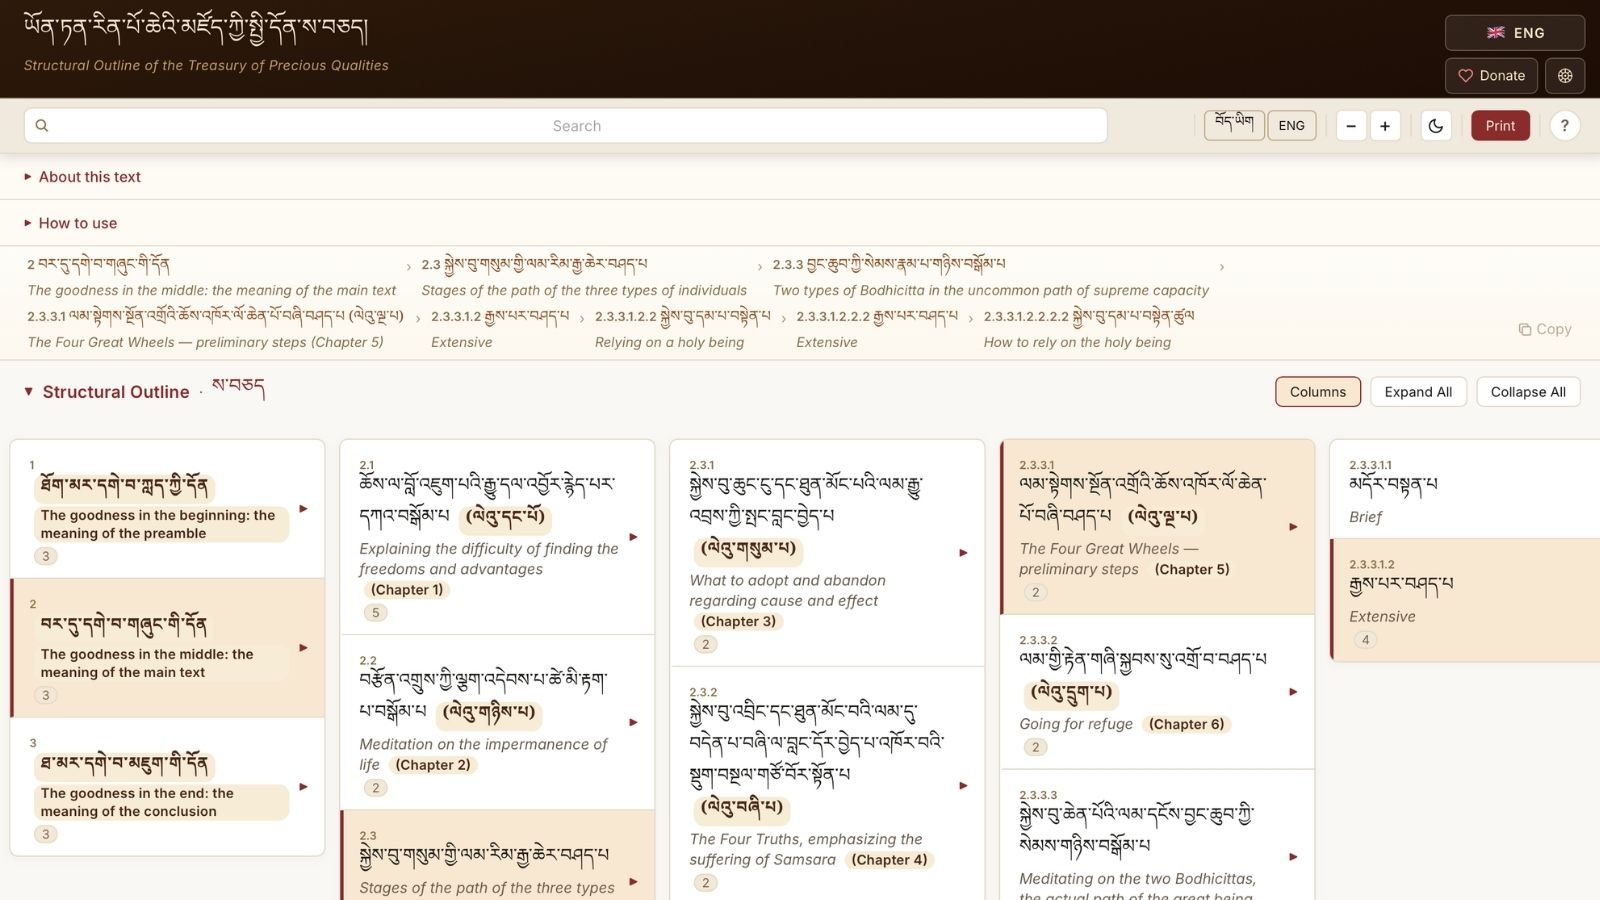 ཡོན་ཏན་རིན་པོ་ཆེའི་མཛོད་ཀྱི་སྤྱི་དོན་ས་བཅད།
Structural Outline of the Treasury of Precious Qualities
🇬🇧 ENG
Donate
Search
བོད་ཡིག
ENG
− +
Print
?
About this text
How to use
2 བར་དུ་དགེ་བ་གཞུང་གི་དོན › 2.3 སྐྱེས་བུ་གསུམ་གྱི་ལམ་རིམ་རྒྱ་ཆེར་བཤད་པ › 2.3.3 བྱང་ཆུབ་ཀྱི་སེམས་རྣམ་པ་གཉིས་བསྒོམ་པ ›
The goodness in the middle: the meaning of the main text Stages of the path of the three types of individuals Two types of Bodhicitta in the uncommon path of supreme capacity
2.3.3.1 ལམ་སྟེགས་སྔོན་འགྲོའི་ཆོས་འཁོར་ལོ་ཆེན་པོ་བཞི་བཤད་པ (ལེའུ་ལྔ་པ) › 2.3.3.1.2 རྒྱས་པར་བཤད་པ › 2.3.3.1.2.2 སྐྱེས་བུ་དམ་པ་བསྟེན་པ › 2.3.3.1.2.2.2 རྒྱས་པར་བཤད་པ › 2.3.3.1.2.2.2.2 སྐྱེས་བུ་དམ་པ་བསྟེན་ཚུལ
The Four Great Wheels — preliminary steps (Chapter 5) Extensive Relying on a holy being Extensive How to rely on the holy being
Copy
Structural Outline · ས་བཅད
Columns Expand All Collapse All
1
ཐོག་མར་དགེ་བ་ཀླད་ཀྱི་དོན
The goodness in the beginning: the
meaning of the preamble
3
2
བར་དུ་དགེ་བ་གཞུང་གི་དོན
The goodness in the middle: the
meaning of the main text
3
3
ཐ་མར་དགེ་བ་མཇུག་གི་དོན
The goodness in the end: the
meaning of the conclusion
3
2.1
ཆོས་ལ་བློ་འཇུག་པའི་རྒྱུ་དལ་འབྱོར་རྙེད་པར་
དཀའ་བསྒོམ་པ (ལེའུ་དང་པོ)
Explaining the difficulty of finding the
freedoms and advantages
(Chapter 1)
5
2.2
བརྩོན་འགྲུས་ཀྱི་ལྕག་འདེབས་པ་ཚེ་མི་རྟག་
པ་བསྒོམ་པ (ལེའུ་གཉིས་པ)
Meditation on the impermanence of
life (Chapter 2)
2
2.3
སྐྱེས་བུ་གསུམ་གྱི་ལམ་རིམ་རྒྱ་ཆེར་བཤད་པ
Stages of the path of the three types
2.3.1
སྐྱེས་བུ་ཆུང་ངུ་དང་ཐུན་མོང་པའི་ལམ་རྒྱུ་
འབྲས་ཀྱི་སྤང་བླང་བྱེད་པ
(ལེའུ་གསུམ་པ)
What to adopt and abandon
regarding cause and effect
(Chapter 3)
2
2.3.2
སྐྱེས་བུ་འབྲིང་དང་ཐུན་མོང་བའི་ལམ་དུ་
བདེན་པ་བཞི་ལ་བླང་དོར་བྱེད་པ་འཁོར་བའི་
སྡུག་བསྔལ་གཙོ་བོར་སྟོན་པ
(ལེའུ་བཞི་པ)
The Four Truths, emphasizing the
suffering of Samsara (Chapter 4)
2
2.3.3.1
ལམ་སྟེགས་སྔོན་འགྲོའི་ཆོས་འཁོར་ལོ་ཆེན་
པོ་བཞི་བཤད་པ (ལེའུ་ལྔ་པ)
The Four Great Wheels —
preliminary steps (Chapter 5)
2
2.3.3.2
ལམ་གྱི་རྟེན་གཞི་སྐྱབས་སུ་འགྲོ་བ་བཤད་པ
(ལེའུ་དྲུག་པ)
Going for refuge (Chapter 6)
2
2.3.3.3
སྐྱེས་བུ་ཆེན་པོའི་ལམ་དངོས་བྱང་ཆུབ་ཀྱི་
སེམས་གཉིས་བསྒོམ་པ
Meditating on the two Bodhicittas,
the actual path of the great being
2.3.3.1.1
མདོར་བསྟན་པ
Brief
2.3.3.1.2
རྒྱས་པར་བཤད་པ
Extensive
4